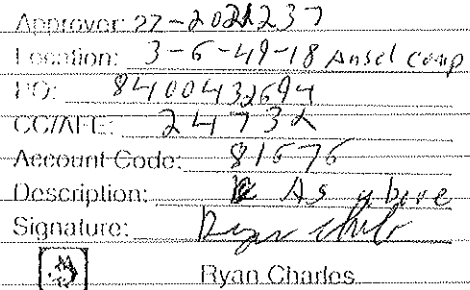 Approver: 27-2021237
Location: 3-6-49-18 Ansel Comp
PO: 8400432694
CC/AFE: 24732
Account Code: 81676
Description: As above
Signature:
Ryan Charles